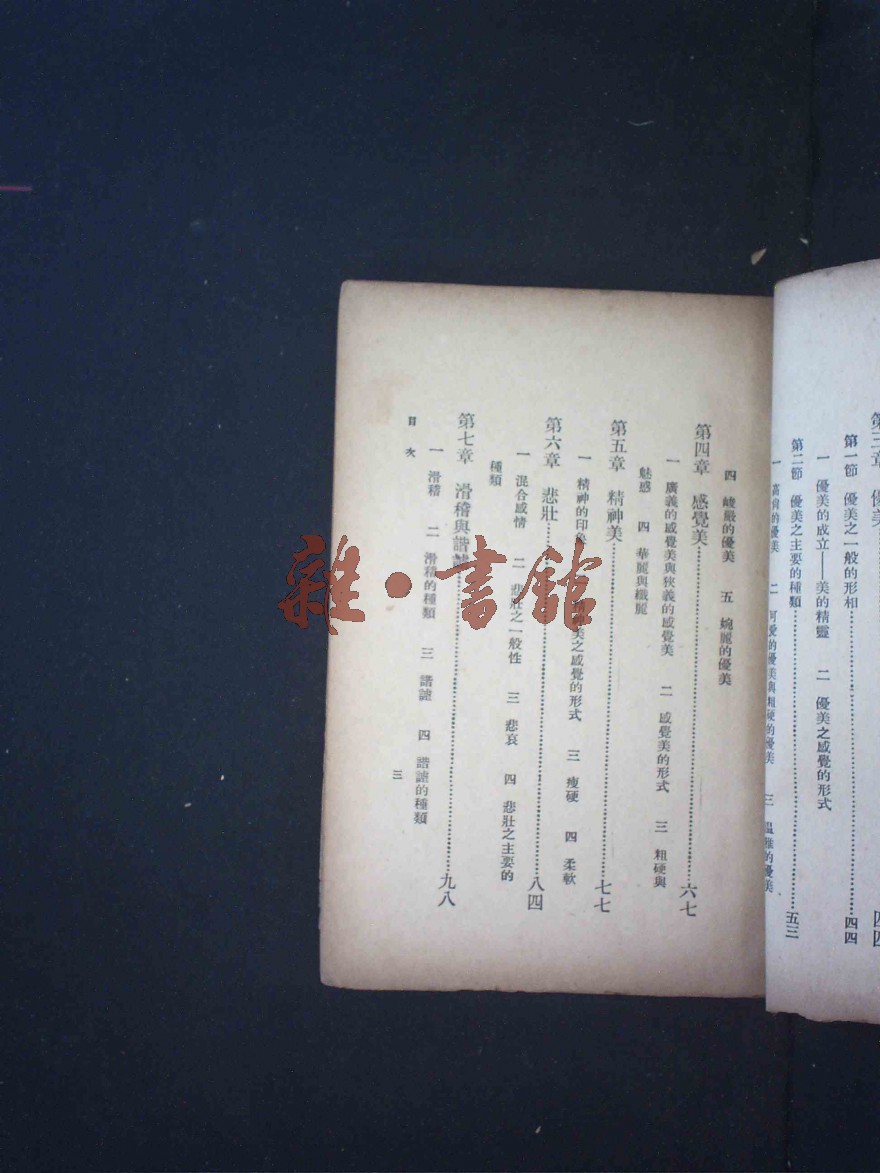 第三章 優美
四四
第一節 優美之一般的形相……四四
一 優美的成立——美的精靈 二 優美之感覺的形式
第二節 優美之主要的種類……五三
一 高尚的優美 二 可愛的優美與粗硬的優美 三 温雅的優美
四 峻嚴的優美 五 婉麗的優美
第四章 感覺美……六七
一 廣義的感覺美與狹義的感覺美 二 感覺美的形式 三 粗硬與
魅感 四 華麗與纖麗
第五章 精神美……七七
一 精神的印象 精神美之感覺的形式 三 瘦硬 四 柔軟
第六章 悲壯……八四
一 混合感情 二 悲壯之一般性 三 悲哀 四 悲壯之主要的
種類
第七章 滑稽與諧謔……九八
一 滑稽 二 滑稽的種類 三 諧謔 四 諧謔的種類
目次
三
雜·書館